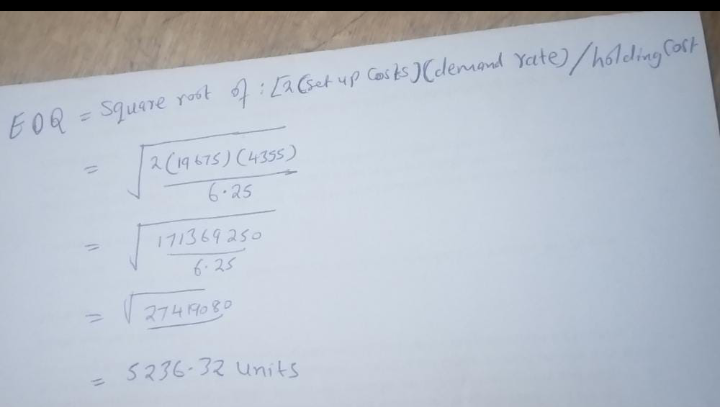 EOQ = Square root of : [2(set up costs)(demand rate)/holding Cost
= √2(19675)(4355)
6.25
= √171369250
6.25
= √27419080
= 5236.32 units